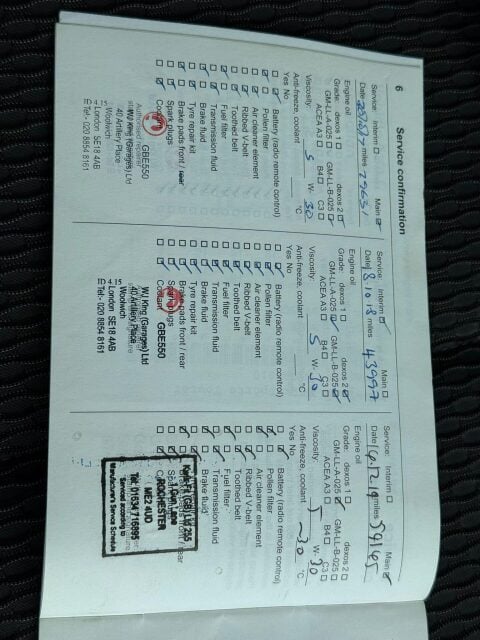 6 Service confirmation
Service: Interim Main
Date miles 29631
Engine oil
Grade: dexos 1 dexos 2
GM-LL-A-025 GM-LL-B-025
ACEA A3 B4 C3
Viscosity: 5 W- 30
Anti-freeze, coolant °C
Yes No
Battery (radio remote control)
Pollen filter
Air cleaner element
Ribbed V-belt
Toothed belt
Fuel filter
Transmission fluid
Brake fluid
Tyre repair kit
Brake pads front / rear
Spark plugs
Coolant
GBE550
WJ King (Garages) Ltd
40 Artillery Place
Woolwich
London SE18 4AB
Tel- 020 8854 8161
Service: Interim Main
Date 18.10.18 miles 43997
Engine oil
Grade: dexos 1 dexos 2
GM-LL-A-025 GM-LL-B-025
ACEA A3 B4 C3
Viscosity: 5 W- 30
Anti-freeze, coolant °C
Yes No
Battery (radio remote control)
Pollen filter
Air cleaner element
Ribbed V-belt
Toothed belt
Fuel filter
Transmission fluid
Brake fluid
Tyre repair kit
Brake pads front / rear
Spark plugs
Coolant
GBE550
WJ King (Garages) Ltd
40 Artillery Place
Woolwich
London SE18 4AB
Tel- 020 8854 8161
Service: Interim Main
Date miles 59165
Engine oil
Grade: dexos 1 dexos 2
GM-LL-A-025 GM-LL-B-025
ACEA A3 B4 C3
Viscosity: 5 W- 30
Anti-freeze, coolant -30 °C
Yes No
Battery (radio remote control)
Pollen filter
Air cleaner element
Ribbed V-belt
Toothed belt
Fuel filter
Transmission fluid
Brake fluid
Kwik-Fit (GB) Ltd
ROCHESTER
ME2 4UD
Tel: 01634 716895
Serviced according to
Manufacturer's Service Schedule